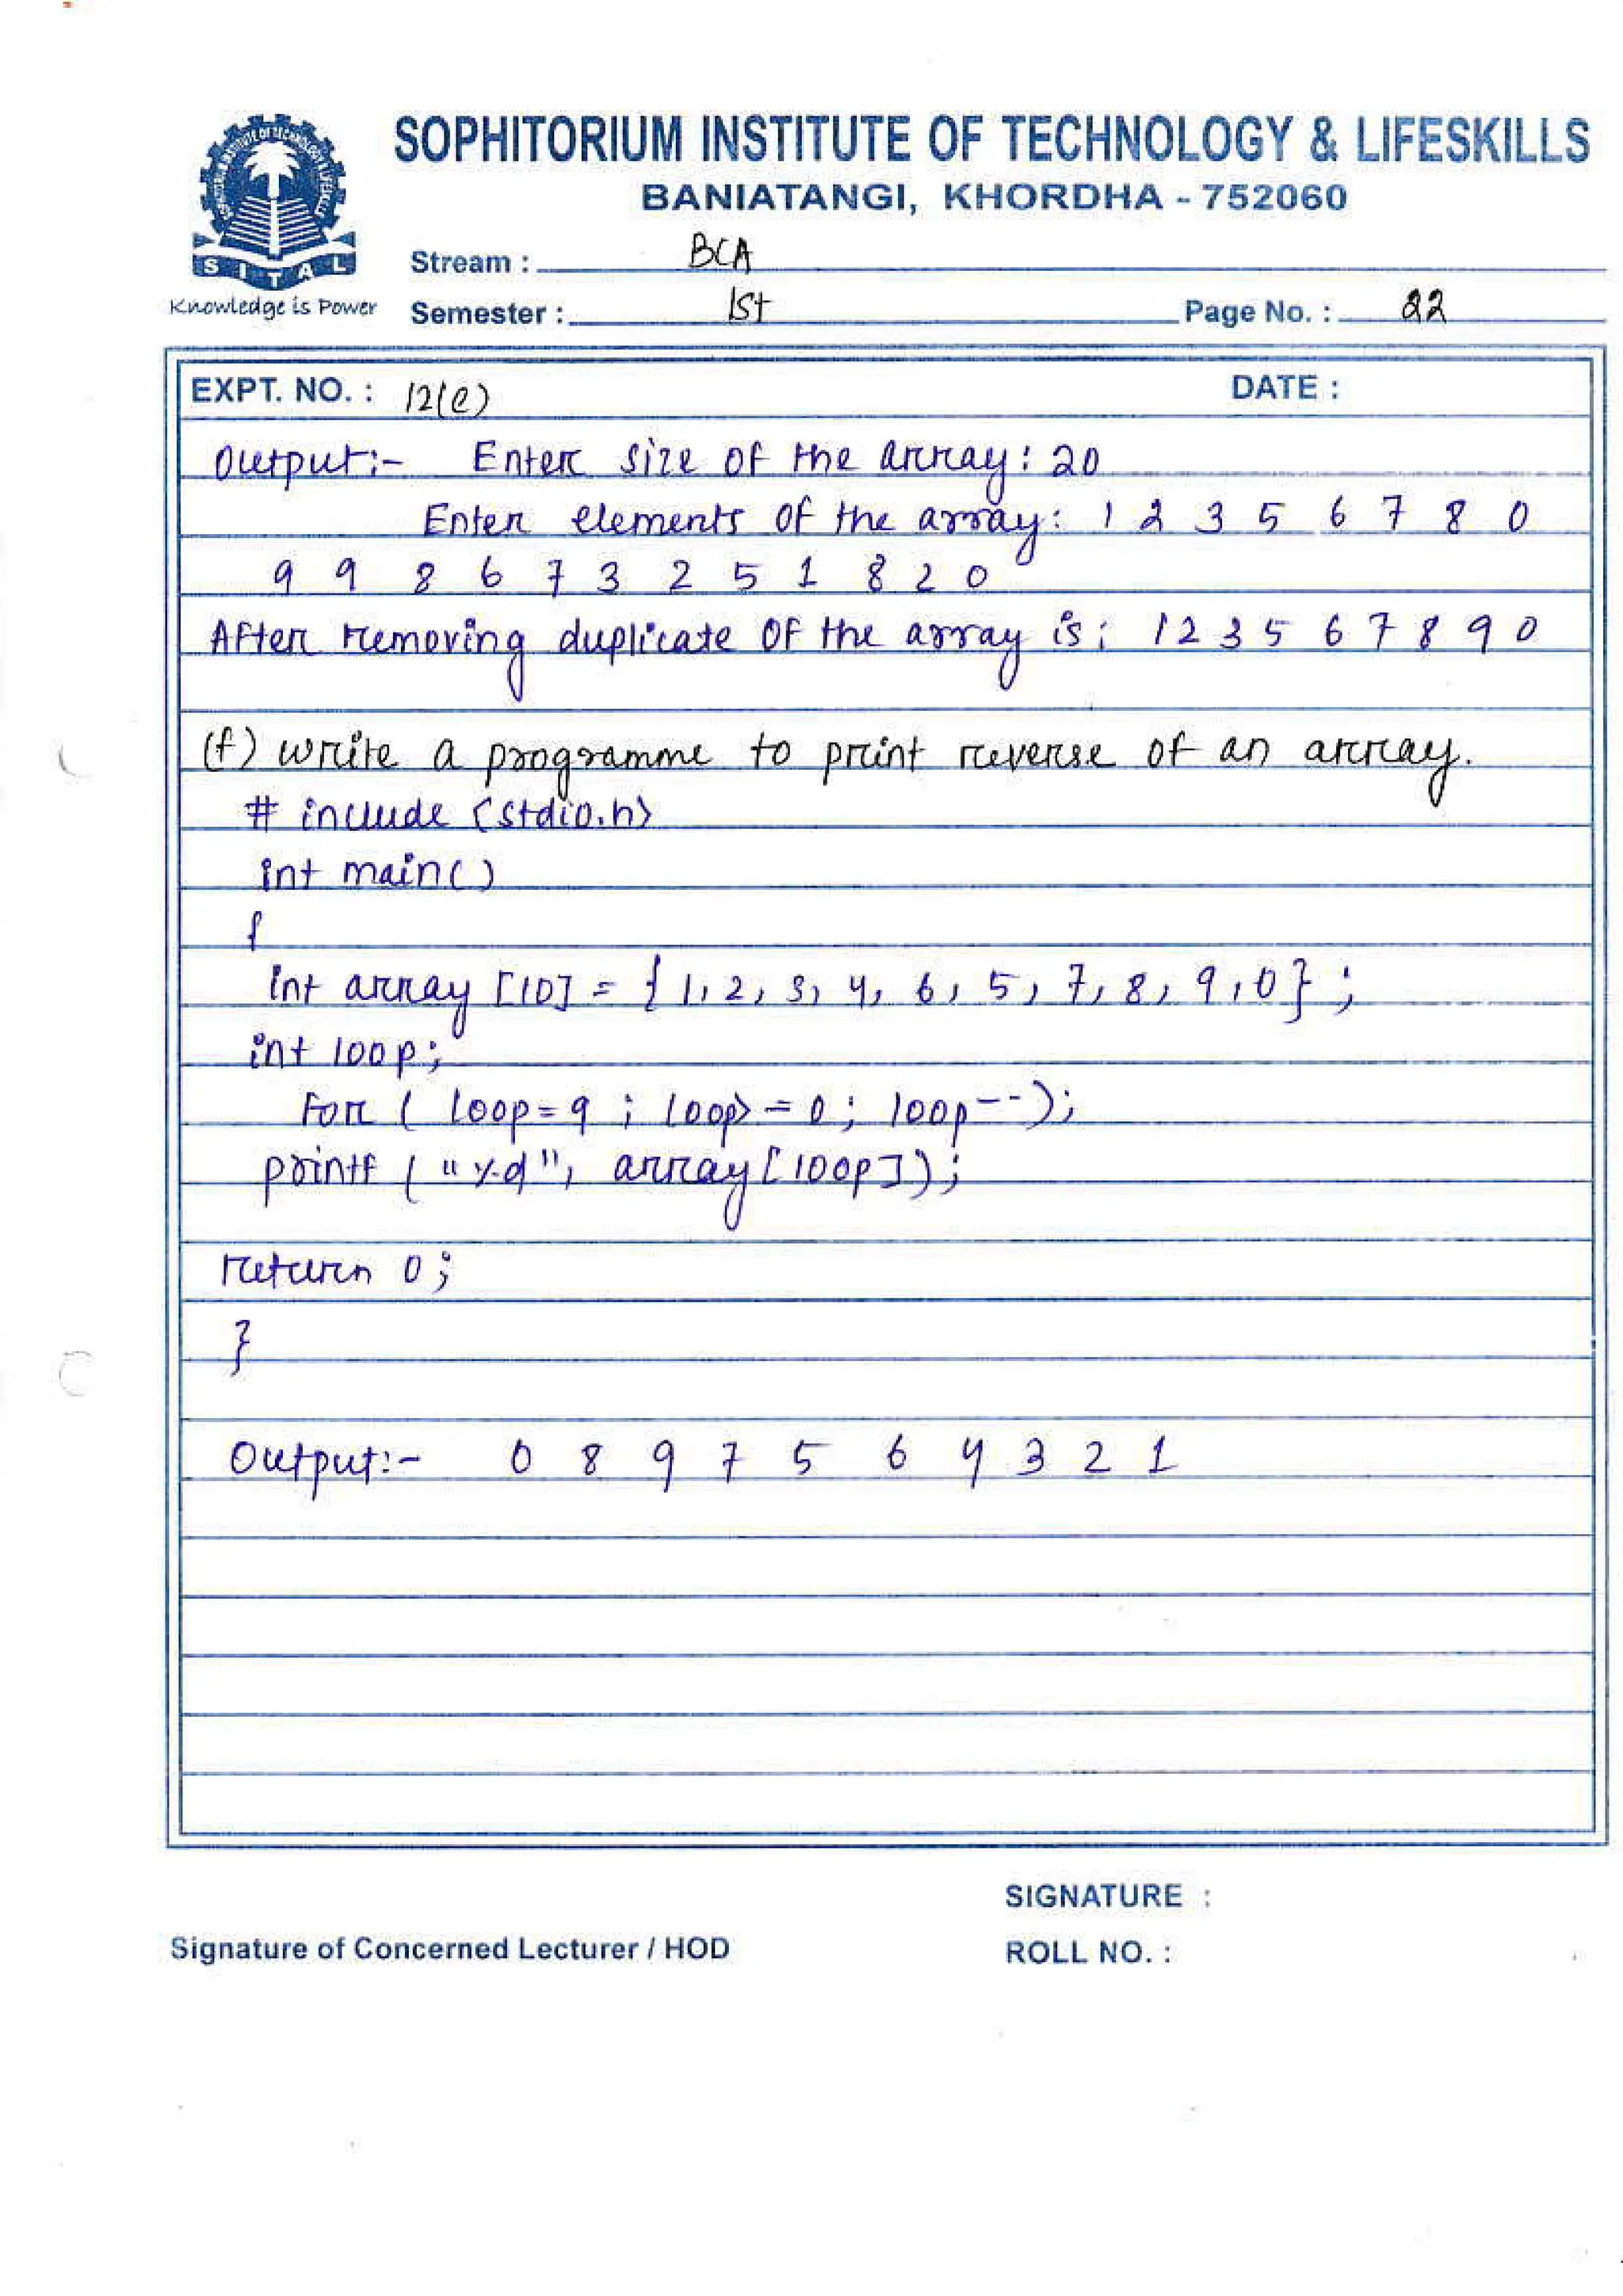 SOPHITORIUM INSTITUTE OF TECHNOLOGY & LIFESKILLS
BANIATANGI, KHORDHA - 752060
SITAL
Knowledge is Power
Stream : BCA
Semester : 1st Page No. : 22
EXPT. NO. : 12(e) DATE :
Output:- Enter size of the array: 20
Enter elements of the array: 1 2 3 5 6 7 8 0
9 9 8 6 7 3 2 5 1 8 2 0
After removing duplicate of the array is: 1 2 3 5 6 7 8 9 0
(f) write a programme to print reverse of an array.
# include <stdio.h>
int main()
{
int array [10] = { 1, 2, 3, 4, 6, 5, 7, 8, 9, 0 } ;
int loop;
For ( loop=9 ; loop>=0; loop--);
printf ( "%d", array[loop]);
return 0;
}
Output:- 0 8 9 7 5 6 4 3 2 1
SIGNATURE :
Signature of Concerned Lecturer / HOD
ROLL NO. :